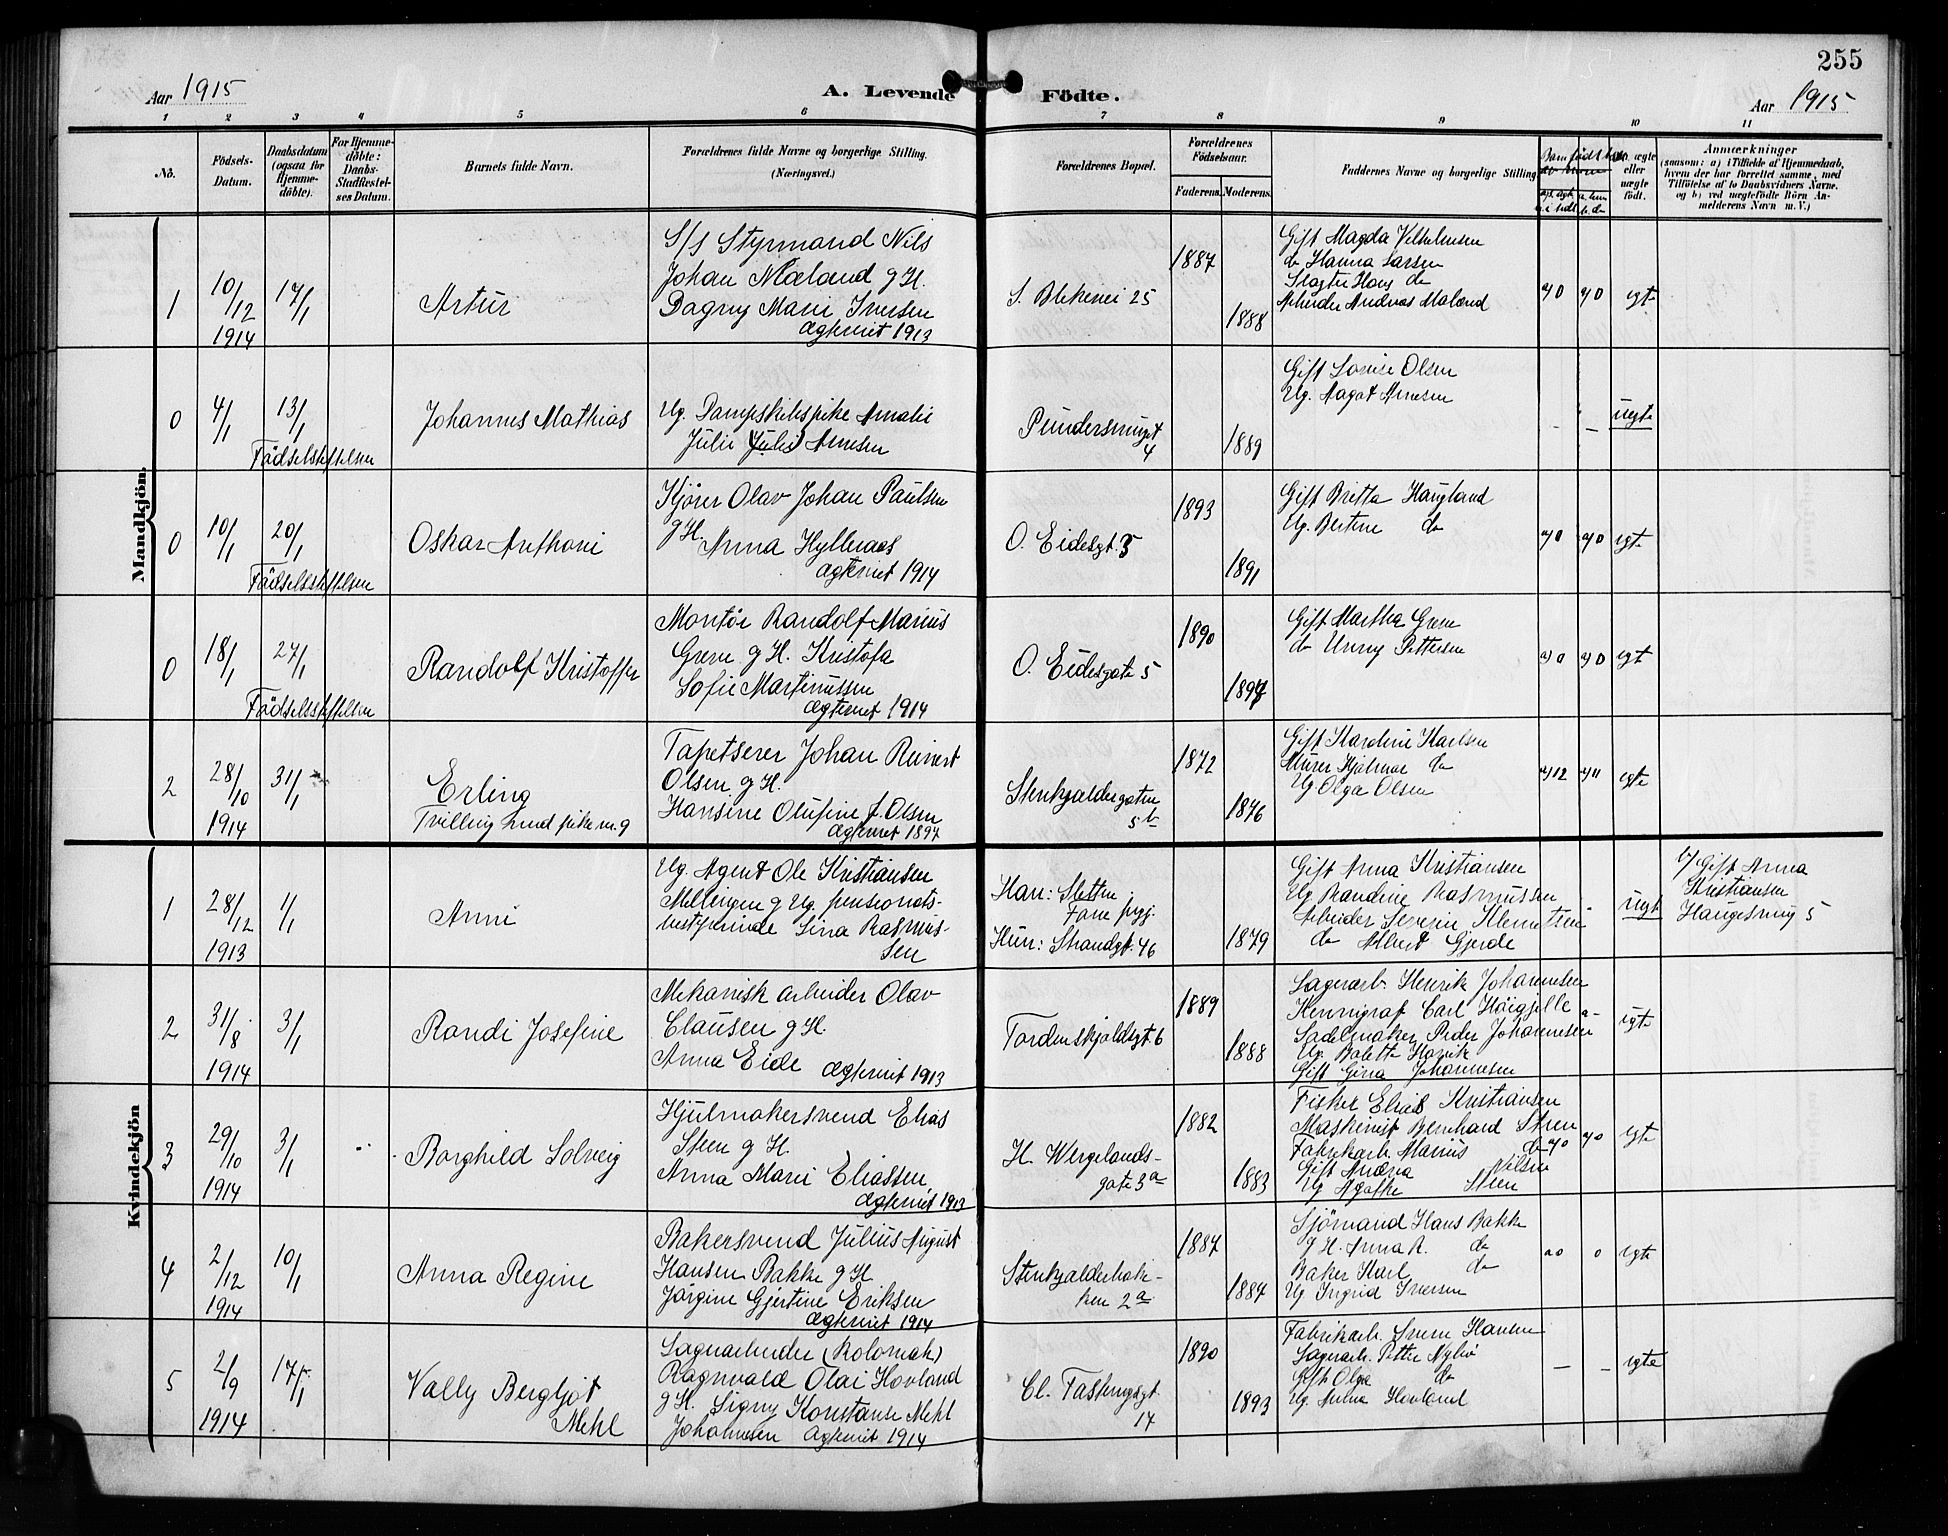 255
Aar 1915
A. Levende Födte.
Aar 1915
1 2 3 4 5 6 7 8 9 10 11
No.
Födsels-Datum.
Daabsdatum (ogsaa for Hjemme-döbte).
For Hjemme-döbte: Daabs-Stadfæstel-ses Datum.
Barnets fulde Navn.
Forældrenes fulde Navne og borgerlige Stilling.
(Næringsvei.)
Forældrenes Bopæl.
Forældrenes Födselsaar.
Faderens. Moderens.
Faddernes Navne og borgerlige Stilling
ægte eller uægte födt.
Anmærkninger
(saasom: a) i Tilfælde af Hjemmedaab,
hvem der har forrettet samme, med
Tilföielse af to Daabsvidners Navne.
og b) ved uægtefödte Börn An-
melderens Navn m. V.)
Mandkjön.
1
10/12 1914
17/1
Artur
S/s Styrmand Nils
Johan Mæland g H.
Dagny Marie Iversen
Ægteviet 1913
S. Blekevei 25
1887
1888
Gift Magda Vilhelmsen
do Hanna Larsen
Slagter Hans do
Arbeider Andreas Malænd
egte
0
4/1
13/1
Födselsstiftelsen
Johannes Mathias
Ug. Dampskibspike Amalie
Julie Julie Arnesen
Pundersmuget
4
1889
Gift Lovise Olsen
Ug. Aagot Arnesen
uegte
0
10/1
20/1
Födselsstiftelsen
Oskar Anthoni
Kjører Olav Johan Paulsen
g H. Anna Hyllenæs
Ægteviet 1914
O. Eidesgt. 5
1893
1891
Gift Britta Haugland
Ug. Bertine do
egte
0
18/1
27/1
Födselsstiftelsen
Randolf Kristoffer
Montör Randolf Marius
Greve g H. Kristofa
Sofie Martinussen
Ægteviet 1914
O. Eidesgate 5
1890
Gift Martha Greve
do Unny Pettersen
egte
2
28/10 1914
31/1
Erling
Tvilling med pike nr. 9
Tapetserer Johan Reinert
Olsen g H.
Hansine Olufine f. Olsen
Ægteviet 1897
Stenkjaldergaten
5 b
1872
1876
Gift Kardine Karlsen
Murer Hjalmar do
Ug Olga Olsen
egte
Kvindekjön
1
28/12 1913
1/1
Anni
Ug. Agent Ole Kristiansen
Mellingen g Ug. pensionats-
bestyrerinde Lina Rasmus-
sen
Han: Sletten
Fane prgj.
Hun: Strandgt. 46
1879
Gift Anna Kristiansen
Ug Randine Rasmussen
Arbeider Severin Klemetsen
do Albert Gjerde
uegt
b/ Gift Anna
Kristiansen
Haugesmug 5
2
31/8 1914
3/1
Randi Josefine
Mekanisk arbeider Olav
Clausen g H.
Anna Eide Ægteviet 1913
Tordenskjoldsgt. 6
1889
1888
Lagerarb. Henrik Johannesen
Kemigraf Carl Höigjelle
Sadelmaker Peder Johannesen
Ug. Bolette Hovik
Gift Gina Johannesen
egte
3
29/10 1914
3/1
Borghild Solveig
Hjulmakersvend Elias
Steen g H.
Anna Marie Eliassen
Ægteviet 1913
H. Wergelands-
gate 3a
1882
1883
Fisker Elias Kristiansen
Maskinist Bernhard Steen
Fabrikarb. Marius do
Gift Andrea Nilsen
Ug Agathe Steen
egte
4
2/12 1914
10/1
Anna Regine
Bakersvend Julius August
Hansen Bakke g H
Jörgine Gjertine Eriksen
Ægteviet 1914
Stenkjalderbak-
ken 2a
1887
1884
Sjömand Hans Bakke
g H. Anna R. do
Baker Karl do
Ug Ingrid Iversen
egte
5
2/9 1914
17/1
Vally Bergljot
Mehl
Lagerarbeider (Kolomak)
Ragnvald Olai Hovland
g H. Signy Konstanse Mehl
Johannesen Ægteviet 1914
Cl. Fastingsgt.
17
1890
1893
Fabrikarb. Sverre Hansen
Lagerarb. Petter Nybö
Gift Olga do
Ug. Hovland
egte